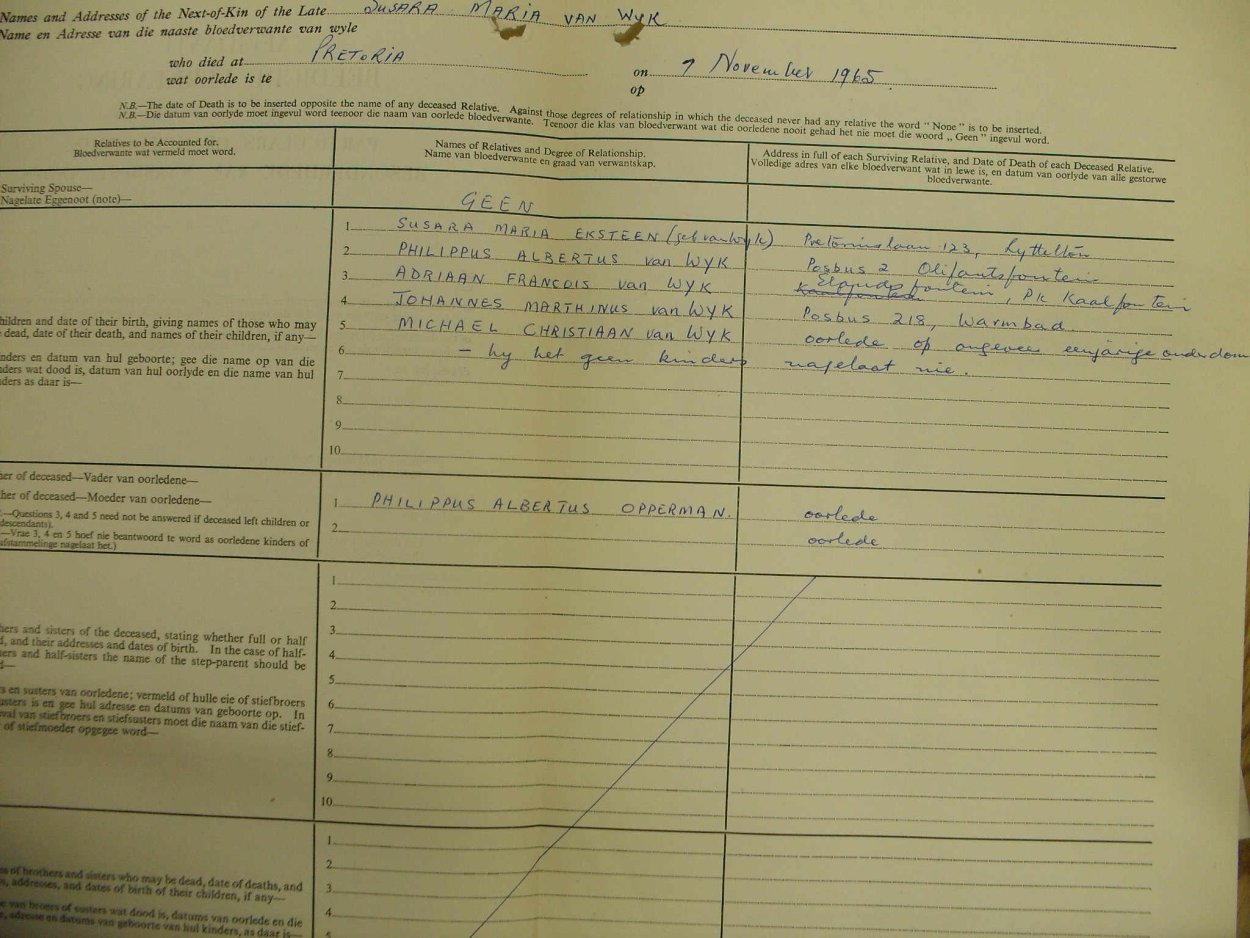 Names and Addresses of the Next-of-Kin of the Late SUSARA MARIA VAN WYK
Name en Adresse van die naaste bloedverwante van wyle
who died at PRETORIA on 7 November 1965
wat oorlede is te op
N.B.—The date of Death is to be inserted opposite the name of any deceased Relative. Against those degrees of relationship in which the deceased never had any relative the word "None" is to be inserted.
N.B.—Die datum van oorlyde moet ingevul word teenoor die naam van oorlede bloedverwante. Teenoor die klas van bloedverwant wat die oorledene nooit gehad het nie moet die woord „Geen" ingevul word.
Relatives to be Accounted for.
Bloedverwante wat vermeld moet word.
Names of Relatives and Degree of Relationship.
Name van bloedverwante en graad van verwantskap.
Address in full of each Surviving Relative, and Date of Death of each Deceased Relative.
Volledige adres van elke bloedverwant wat in lewe is, en datum van oorlyde van alle gestorwe
bloedverwante.
Surviving Spouse—
Nagelate Eggenoot (note)—
GEEN
1 SUSARA MARIA EKSTEEN (geb van Wyk) Pretoriuslaan 123, Lyttelton
2 PHILIPPUS ALBERTUS van WYK Posbus 2 Olifantsfontein
3 ADRIAAN FRANCOIS van WYK Elandsfontein, Pk Kaalfontein
4 JOHANNES MARTHINUS van WYK Posbus 218, Warmbad
5 MICHAEL CHRISTIAAN van WYK oorlede op ongeveer eenjarige ouderdom
6 – hy het geen kinders nagelaat nie.
7
8
9
10
hildren and date of their birth, giving names of those who may
dead, date of their death, and names of their children, if any—
nders en datum van hul geboorte; gee die name op van die
ders wat dood is, datum van hul oorlyde en die name van hul
ders as daar is—
her of deceased—Vader van oorledene—
her of deceased—Moeder van oorledene—
.—Questions 3, 4 and 5 need not be answered if deceased left children or
descendants).
—Vrae 3, 4 en 5 hoef nie beantwoord te word as oorledene kinders of
afstammelinge nagelaat het.)
1 PHILIPPUS ALBERTUS OPPERMAN. oorlede
2 oorlede
1
2
3
4
5
6
7
8
9
10
hers and sisters of the deceased, stating whether full or half
d, and their addresses and dates of birth. In the case of half-
hers and half-sisters the name of the step-parent should be
d—
s en susters van oorledene; vermeld of hulle eie of stiefbroers
usters is en gee hul adresse en datums van geboorte op. In
val van stiefbroers en stiefsusters moet die naam van die stief-
of stiefmoeder opgegee word—
1
2
3
4
5
es of brothers and sisters who may be dead, date of deaths, and
s, addresses, and dates of birth of their children, if any—
e van broers of susters wat dood is, datums van oorlede en die
, adresse en datums van geboorte van hul kinders, as daar is—